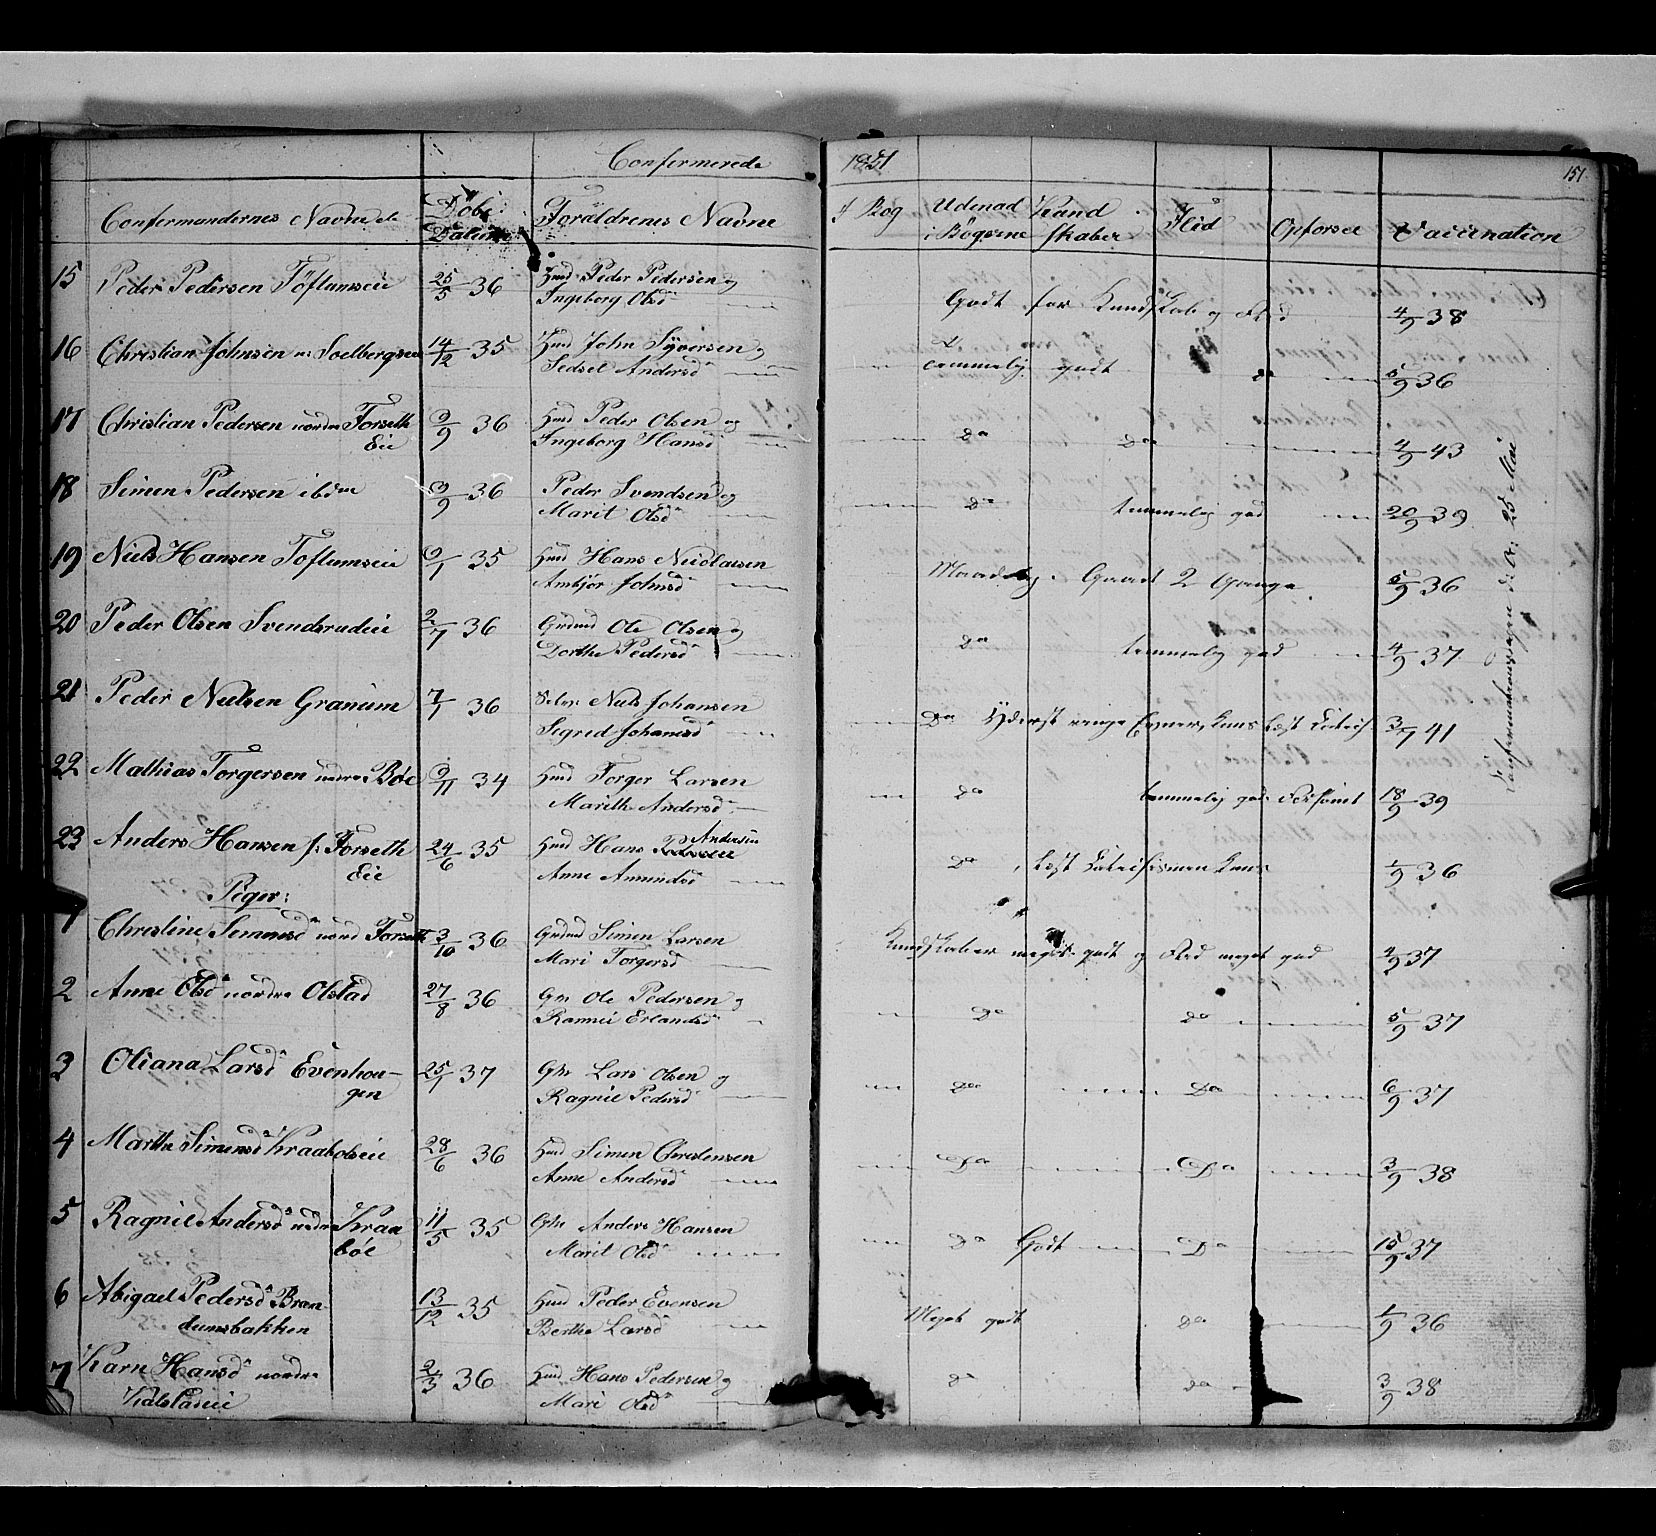 Confermerede 1851 151
Confermandernes Navne etc Döbe: Datum Foräldrenes Navne I Bog Udenad i Bøgerne Kundskaber Flid Opførsel Vaccination
15 Peder Pedersen Töftumseie 25/5 36 Hmd Peder Pedersen og Ingeborg Olsd Godt for Kundskab og Flid 4/9 38
16 Christian Johnsen n: Soelbergseie 14/12 35 Hmd John Syversen og Sedsel Andersd temmelig godt do 5/9 36
17 Christian Pedersen nordre Forseth Eie 9/9 36 Hmd Peder Olsen og Ingeborg Hansd Do Do 4/9 43
18 Simen Pedersen ibdm 9/9 36 Peder Svendsen og Marit Olsd Do temmelig god 20/9 39
19 Niels Hansen Töftumseie 9/1 35 Hmd Hans Nicolaisen Ambjør Johnsd Maadelig. Gaaet 2 Gange. 5/9 36
20 Peder Olsen Svendsrudeie 2/7 36 Grdmd Ole Olsen og Dorthe Pedersd Do temmelig god 4/9 37
21 Peder Nielsen Granum 7/1 36 Niels Johansen Segred Johansd Do Yderst ringe Evner, kuns læst 3/7 41
22 Mathias Torgersen nordre Böe 9/11 34 Hmd Torger Larsen Marith Andersd Do temmelig god 18/9 39
23 Anders Hansen s: Forseth Eie 24/6 35 Hmd Hans Andersen Anne Amundsd Do, læst Katechismen kuns 1/9 36
Piger:
1 Christine Simensd nord Forseth 3/10 36 Grdmd Simen Larsen Mari Torgersd Kundskaber meget godt og Flid meget god 4/9 37
2 Anne Olsd nordre Olstad 27/8 36 Gm Ole Pedersen og Rannei Erlandsd Do Do 5/9 37
3 Oliana Larsd Evenhougen 25/1 37 Gm Lars Olsen og Ragnil Pedersd Do Do 6/9 37
4 Marthe Simensd Kraaboleie 28/6 36 Hmd Simen Christensen Anne Andersd Do Do 3/9 38
5 Ragnil Andersd nedre Kraaböe 11/5 35 Gm Anders Hansen Marit Olsd Do Godt Do 15/9 37
6 Abigael Pedersd Brandumsbakken 13/12 35 Hmd Peder Evensen Berthe Larsd Meget godt Do 1/9 36
7 Karn Hansd nordre 2/3 36 Hmd Hans Pedersen og Mari Olsd do do 3/9 38
Confirmationsdagen d: 25 Mai